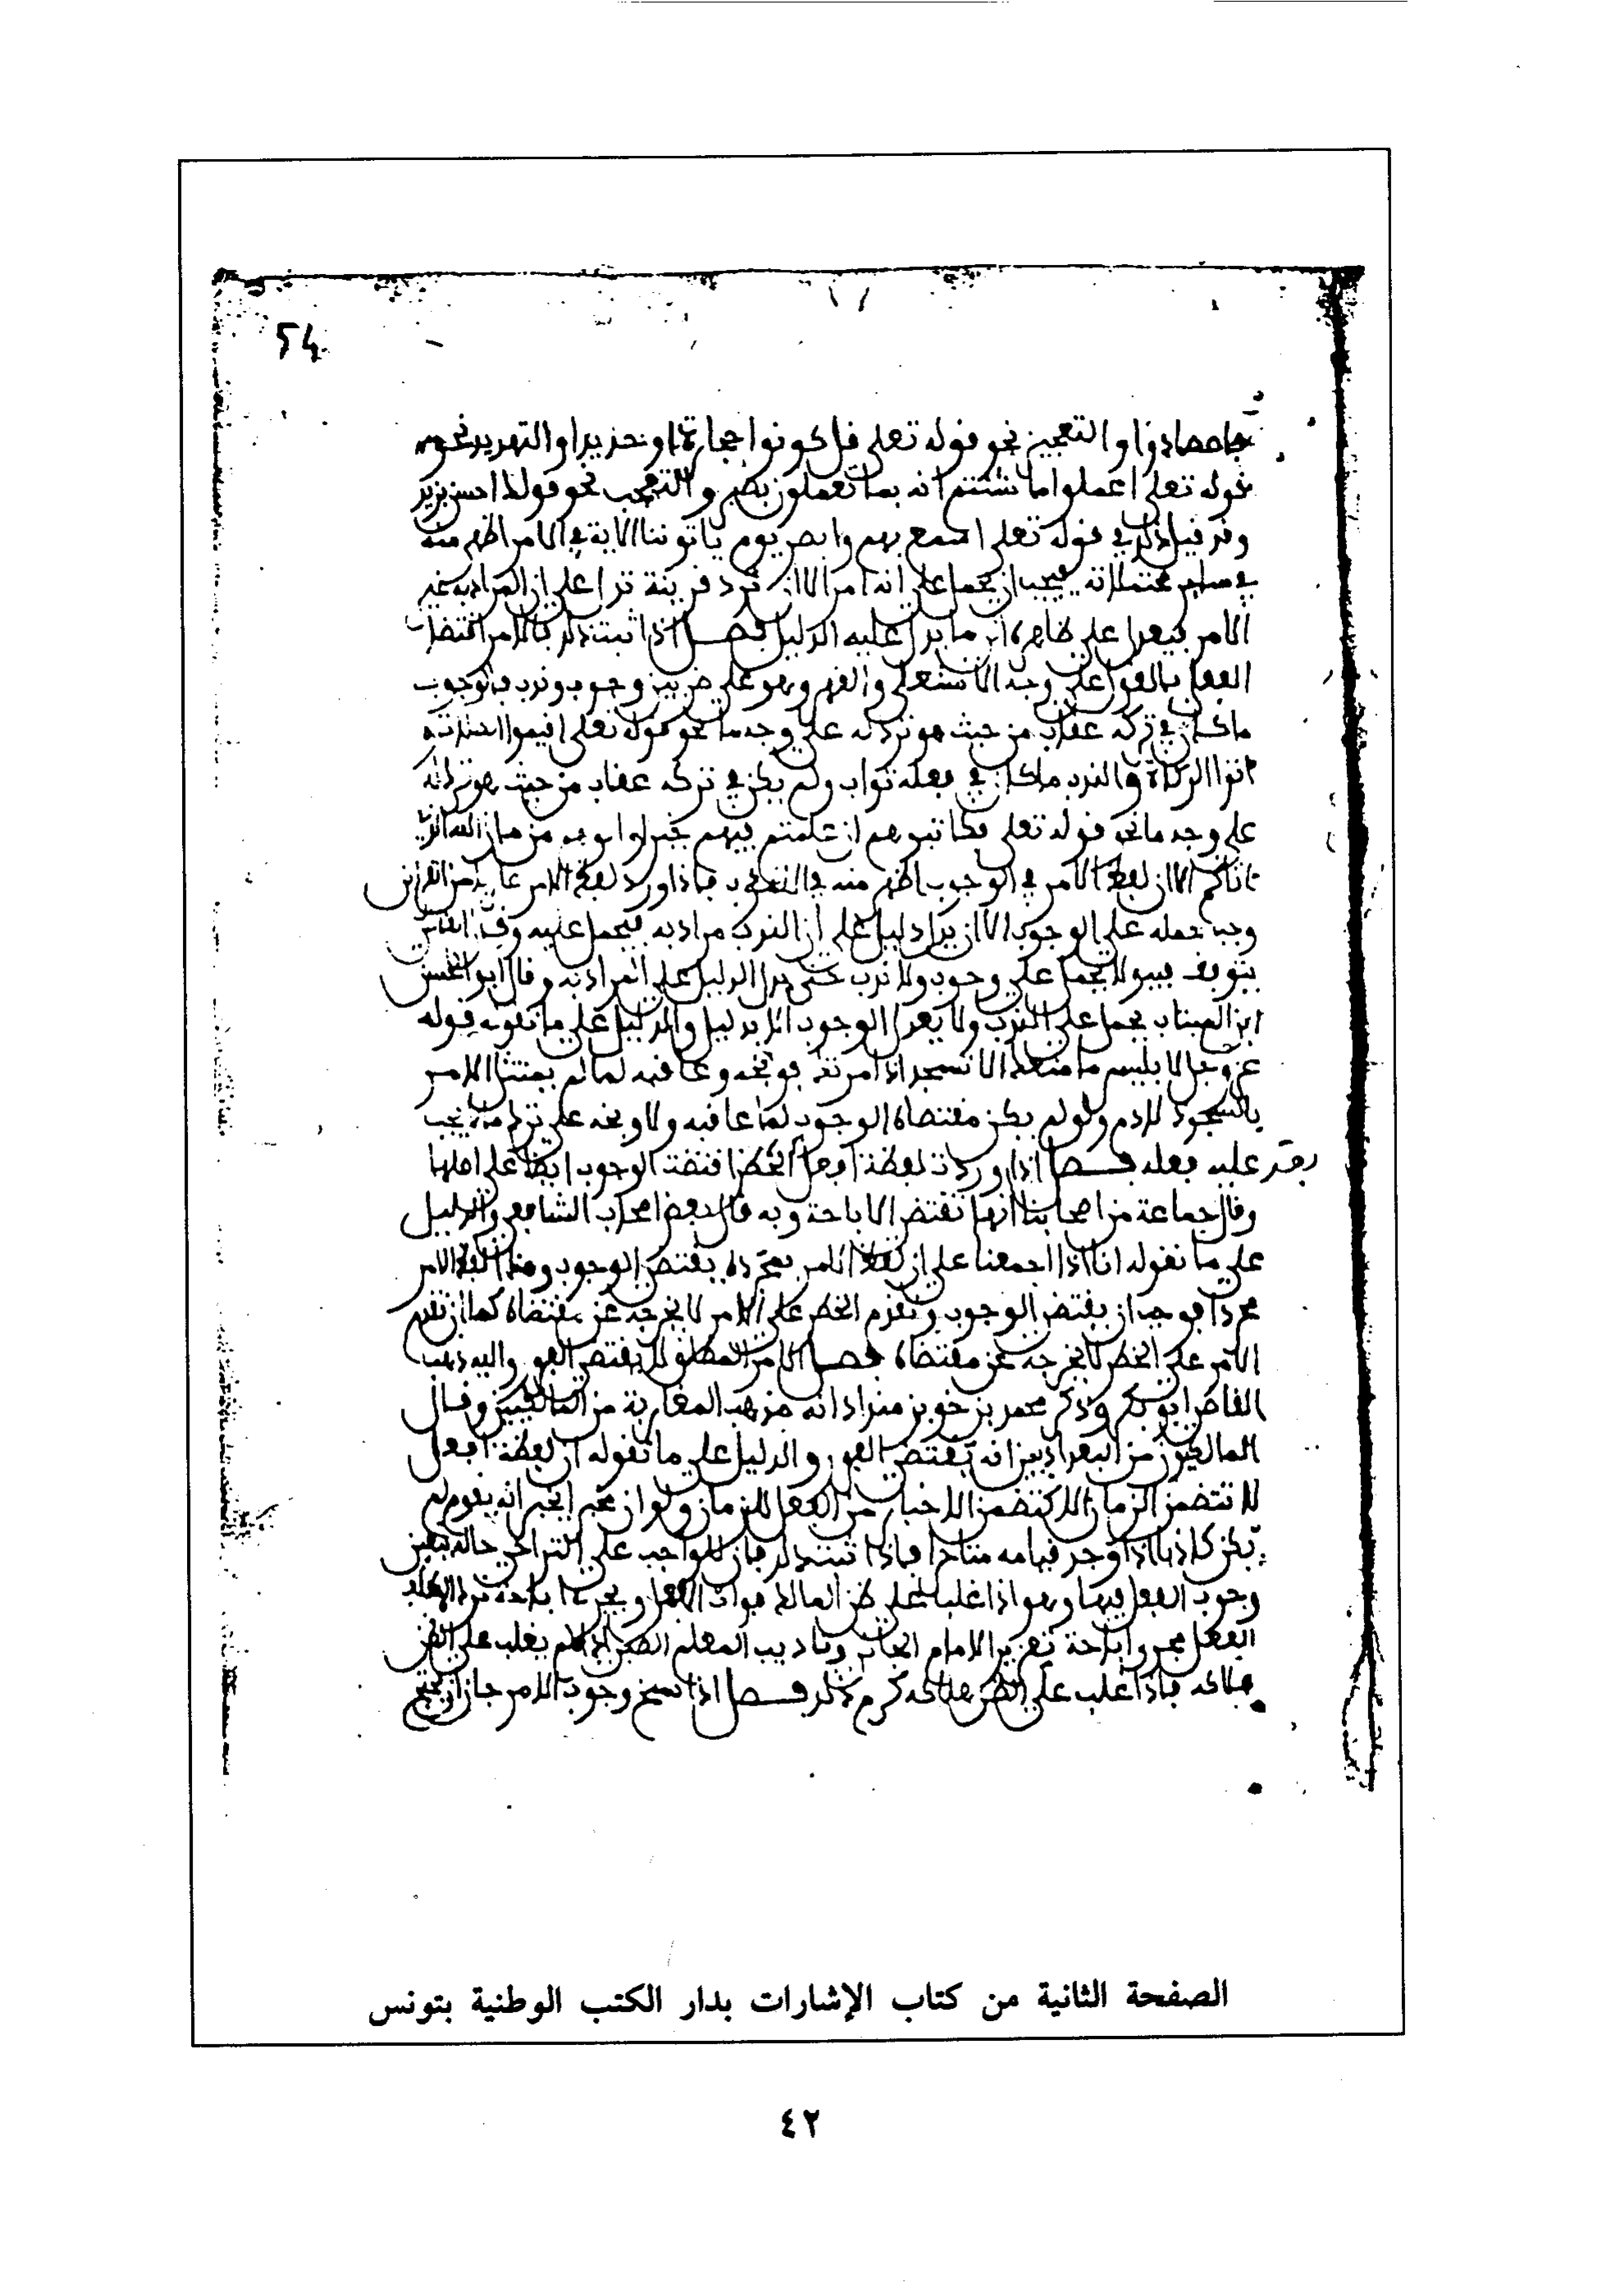 54
فاصطادوا او التعجيز نحو قوله تعلى قل كونوا حجارة او حديدا او التهديد نحو
قوله تعلى اعملوا ما شئتم انه بما تعملون بصير والتعجب نحو قولك احسن بزيد
وقد قيل ذلك في قوله تعلى اسمع بهم وابصر يوم ياتوننا الا انه في الامر اظهر منه
في ساير محتملاته فيجب ان يحمل على انه امر الا ان ترد قرينة تدل على ان المراد به غير
الامر فيعدل على ظاهره الى ما يدل عليه الدليل فصل اذا ثبت ذلك فالامر اقتضا
الفعل بالقول على وجه الاستعلا والقهر وهو على ضربين وجوب وندب فالوجوب
ما كان في تركه عقاب من حيث هو ترك له على وجه ما نحو قوله تعلى اقيموا الصلاة و
اتوا الزكاة والندب ما كان في فعله ثواب ولم يكن في تركه عقاب من حيث هو ترك له
على وجه ما نحو قوله تعلى فكاتبوهم ان علمتم فيهم خيرا واتوهم من مال الله الذي
اتاكم الا ان لفظ الامر في الوجوب اظهر منه في الندب فاذا ورد لفظ الامر عاريا من القراين
وجب حمله على الوجوب الا ان يدل دليل على ان الندب مراد به فيحمل عليه وقال القاضي
يتوقف فيه ولا يحمل على وجوب ولا ندب حتى يدل الدليل على المراد به وقال ابو الحسن
ابن المنتاب يحمل على الندب ولا يعدل الى الوجوب الا بدليل والدليل على ما نقوله قوله
عز وجل لابليس ما منعك الا تسجد اذ امرتك فوبخه وعاقبه لما لم يمتثل الامر
بالسجود لادم ولو لم يكن مقتضاه الوجوب لما عاقبه ولا وبخه على ترك ما لا يجب
عليه فعله فصل اذا وردت لفظة افعل بعد الحظر اقتضت الوجوب ايضا على اصلها
وقال جماعة من اصحابنا انها تقتضي الاباحة وبه قال بعض اصحاب الشافعي والدليل
على ما نقوله انا اذا اجمعنا على ان لفظ الامر بمجرده يقتضي الوجوب وهذا لفظ الامر
مجردا فوجب ان يقتضي الوجوب وتقدم الحظر على الامر لا يخرجه عن مقتضاه كما ان تقدم
الامر على الحظر لا يخرجه عن مقتضاه فصل الامر المطلق لا يقتضي الفور واليه ذهب
القاضي ابو بكر وذكر محمد بن خويز منداد انه مذهب المغاربة من المالكيين وقال
المالكيون من البغداديين انه يقتضي الفور والدليل على ما نقوله ان لفظة افعل
لا تتضمن الزمان الا كتضمن الاخبار عن الفعل للزمان ولو ان مخبرا يخبر انه يقوم لم
يكن كاذبا اذا وجد قيامه متاخرا فاذا ثبت ذلك فان للواجب على التراخي حالة يتعين
وجوب الفعل فيها وهو اذا غلب على ظن العالم فوات الفعل ويجري اباحة ترك المكلف
الفعل مجرى اباحة تعزير الامام الجاني وتاديب المعلم الصبي اذا لم يغلب على الظن
هلاكه فاذا غلب على الظن هلاكه حرم ذلك فصل اذا نسخ وجوب الامر جاز ان يحتج
الصفحة الثانية من كتاب الإشارات بدار الكتب الوطنية بتونس
٤٢